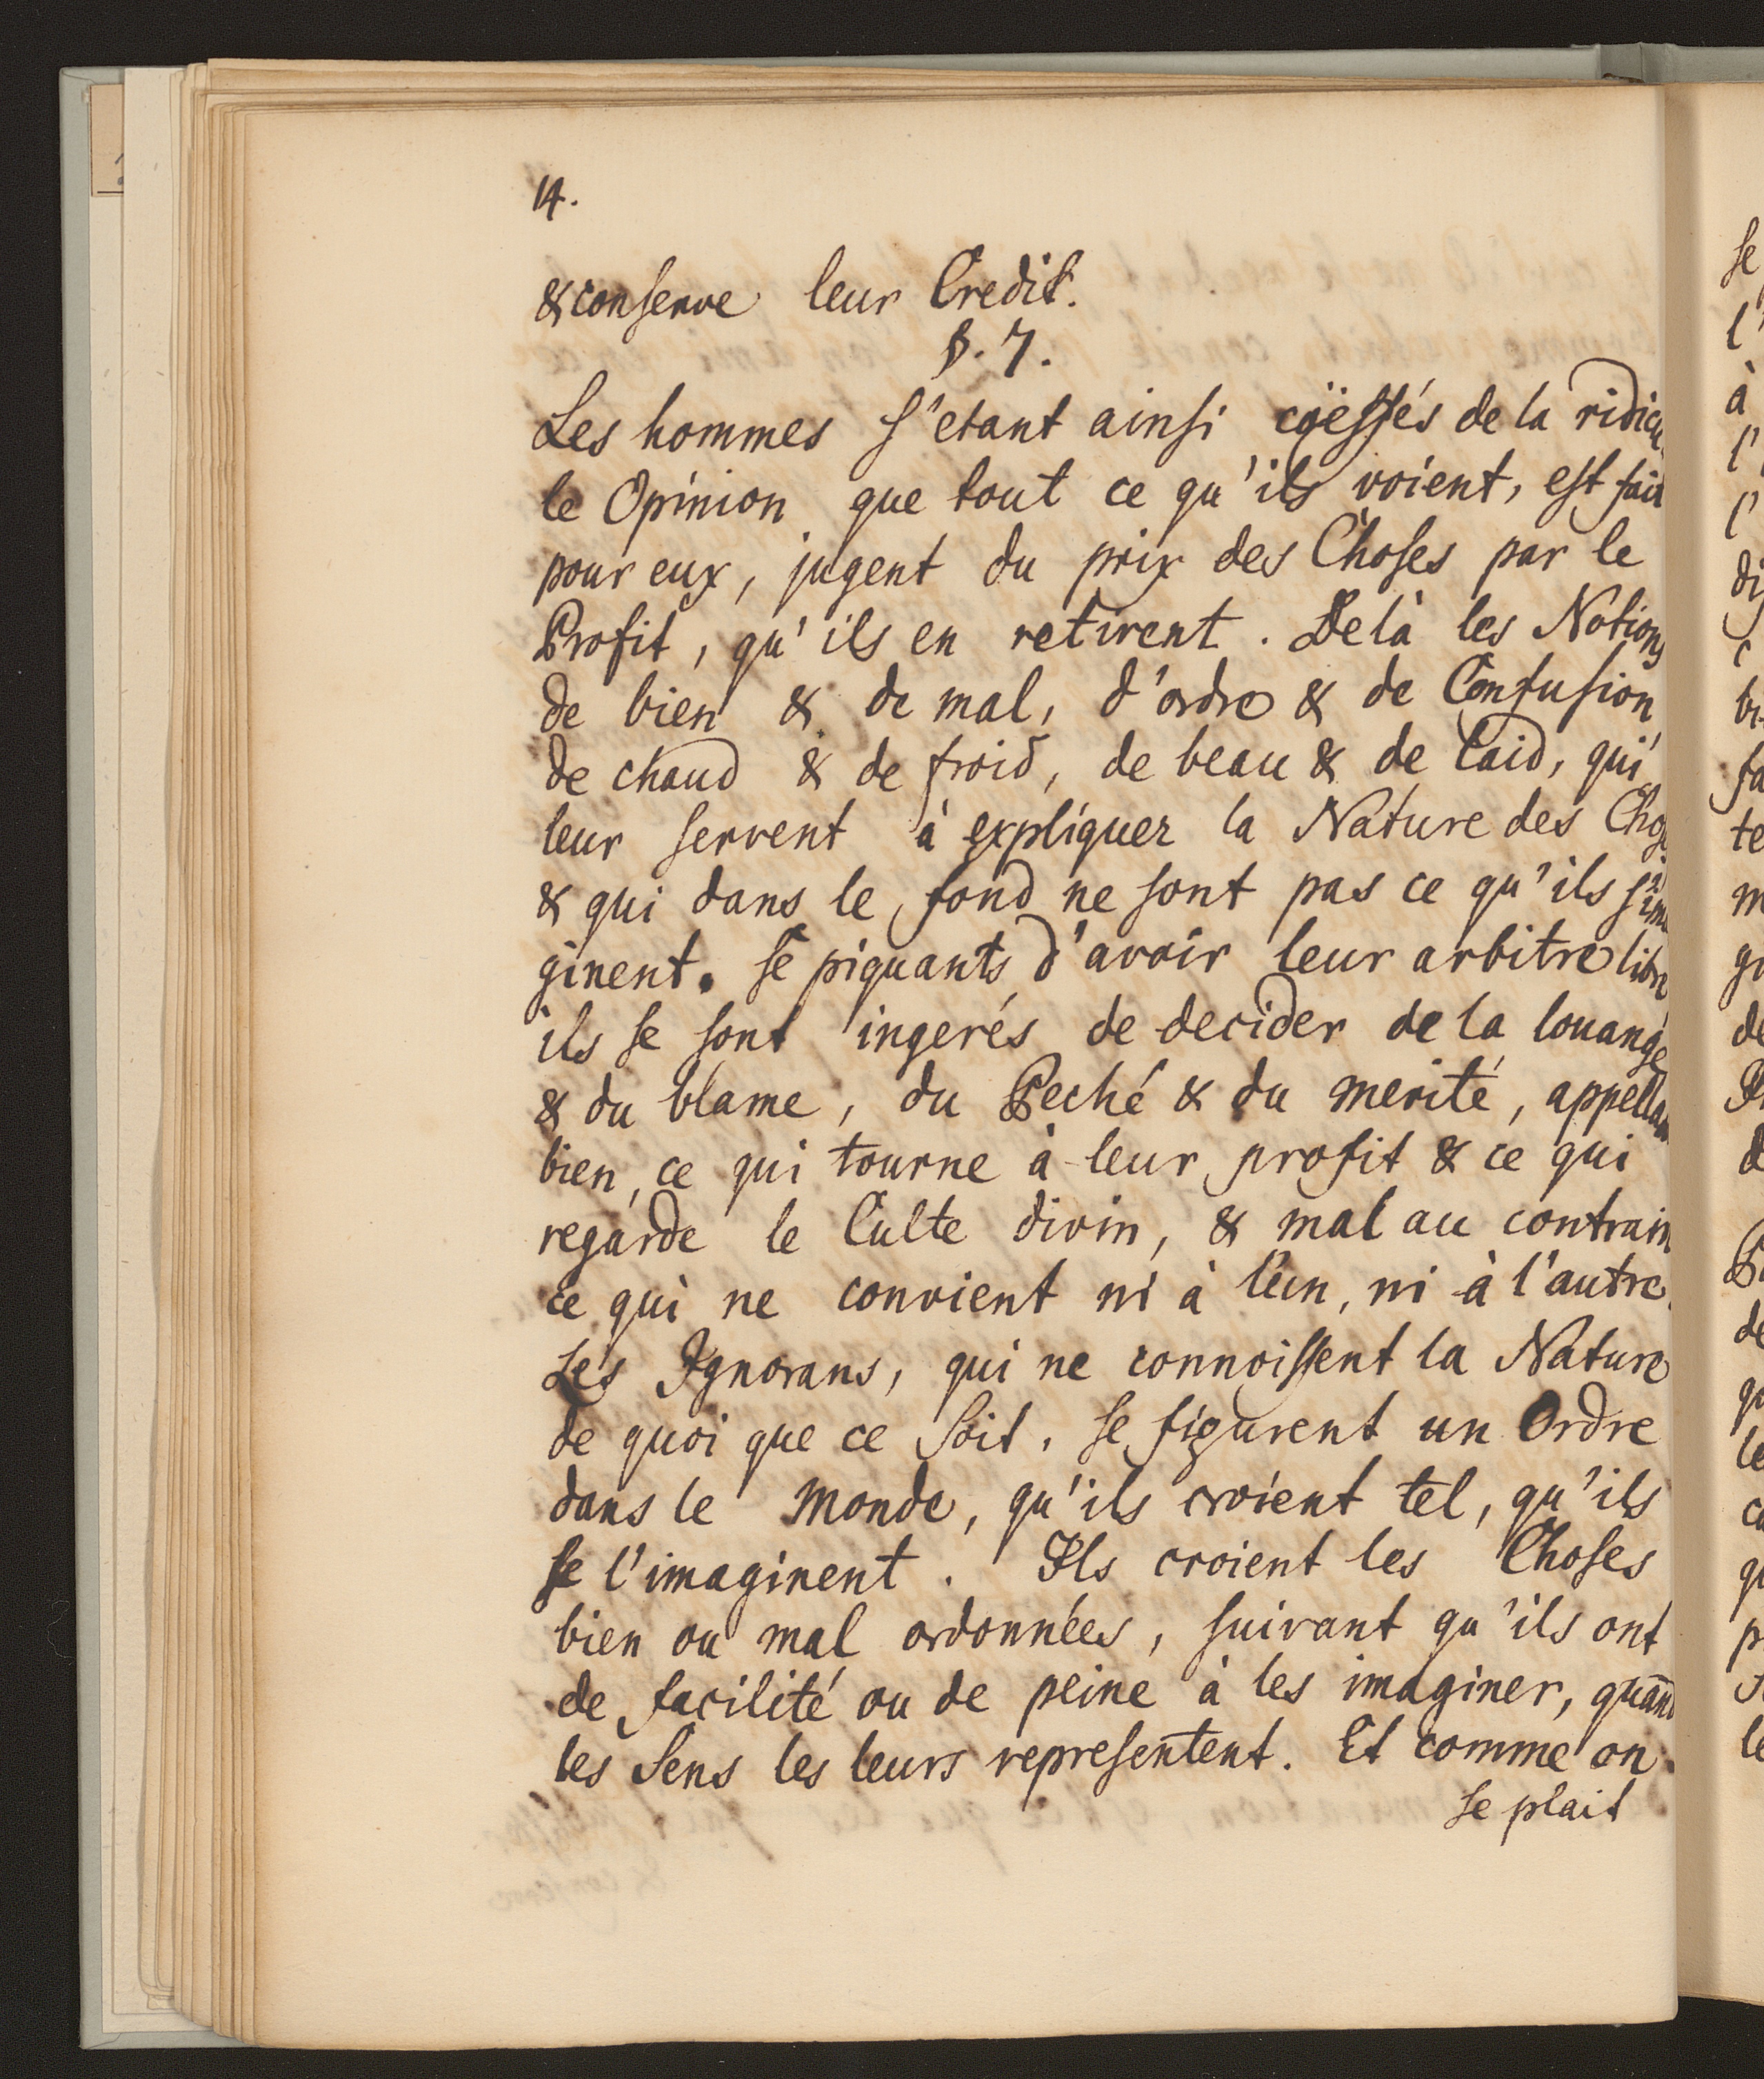 14.
& conserve leur Credit.
§. 7.
Les hommes s'etant ainsi coëffés de la ridicu
le Opinion que tout ce qu'ils voient, est fait
pour eux, jugent du prix des Choses par le
Profit, qu'ils en retirent. Delà les Notions
de bien & de mal, d'ordre & de Confusion,
de chaud & de froid, de beau & de laid, qui
leur servent à expliquer la Nature des Chos
& qui dans le fond ne sont pas ce qu'ils s'ima
ginent. se piquants d'avoir leur arbitre libre
ils se sont ingerés de decider de la louange
& du blame, du Peché & du merite, appellan
bien, ce qui tourne à leur profit & ce qui
regarde le Culte divin, & mal au contrair
ce qui ne convient ni à l'un, ni à l'autre.
Les Ignorans, qui ne connoissent la Nature
de quoi que ce soit, se figurent un Ordre
dans le Monde, qu'ils croient tel, qu'ils
se l'imaginent. Ils croient les Choses
bien ou mal ordonnées, suivant qu'ils ont
de facilité ou de peine à les imaginer, quand
les Sens les leurs representent. Et comme on
se plait